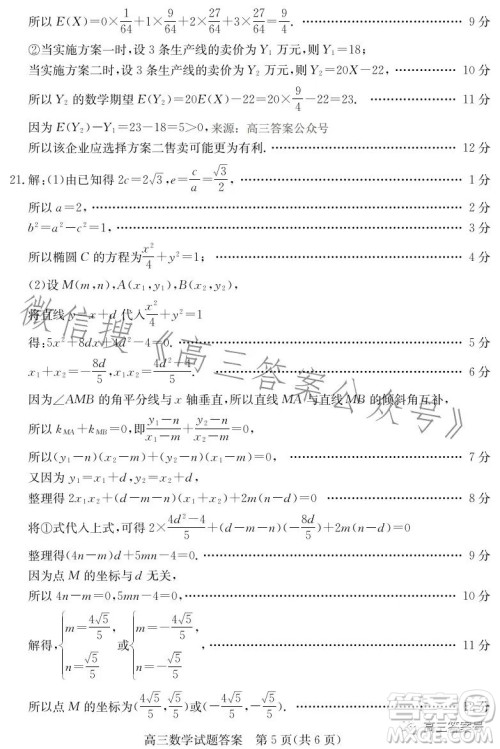 所以 E(X)=0×1/64+1×9/64+2×27/64+3×27/64=9/4. ………… 9 分
②当实施方案一时,设 3 条生产线的卖价为 Y₁ 万元,则 Y₁=18;
当实施方案二时,设 3 条生产线的卖价为 Y₂ 万元,则 Y₂=20X−22, ………… 10 分
所以 Y₂ 的数学期望 E(Y₂)=20E(X)−22=20×9/4−22=23. ………… 11 分
因为 E(Y₂)−Y₁=23−18=5>0, 来源：高三答案公众号
所以该企业应选择方案二售卖可能更为有利. ………… 12 分
21. 解:(1)由已知得 2c=2√3,e=c/a=√3/2, ………… 1 分
所以 a=2, ………… 2 分
b²=a²−c²=1, ………… 3 分
所以椭圆 C 的方程为 x²/4+y²=1; ………… 4 分
(2)设 M(m,n),A(x₁,y₁),B(x₂,y₂),
将直线 y=x+d 代入 x²/4+y²=1
得:5x²+8dx+4d²−4=0. ………… 5 分
x₁+x₂=−8d/5,x₁x₂=(4d²−4)/5.
因为∠AMB 的角平分线与 x 轴垂直,所以直线 MA 与直线 MB 的倾斜角互补,
所以 k_MA+k_MB=0,即 (y₁−n)/(x₁−m)+(y₂−n)/(x₂−m)=0,
所以(y₁−n)(x₂−m)+(y₂−n)(x₁−m)=0, ………… 7 分
又因为 y₁=x₁+d,y₂=x₂+d,
整理得 2x₁x₂+(d−m−n)(x₁+x₂)+2m(n−d)=0 ………… 8 分
将①式代入上式,可得 2×(4d²−4)/5+(d−m−n)(−8d/5)+2m(n−d)=0
整理得(4n−m)d+5mn−4=0. ………… 9 分
因为点 M 的坐标与 d 无关,
所以 4n−m=0,5mn−4=0, ………… 10 分
解得, {m=4√5/5, n=√5/5 或 {m=−4√5/5, n=−√5/5, ………… 11 分
所以点 M 的坐标为(4√5/5,√5/5)或(−4√5/5,−√5/5). ………… 12 分
高三数学试题答案 第 5 页(共 6 页)
微信搜《高三答案公众号》